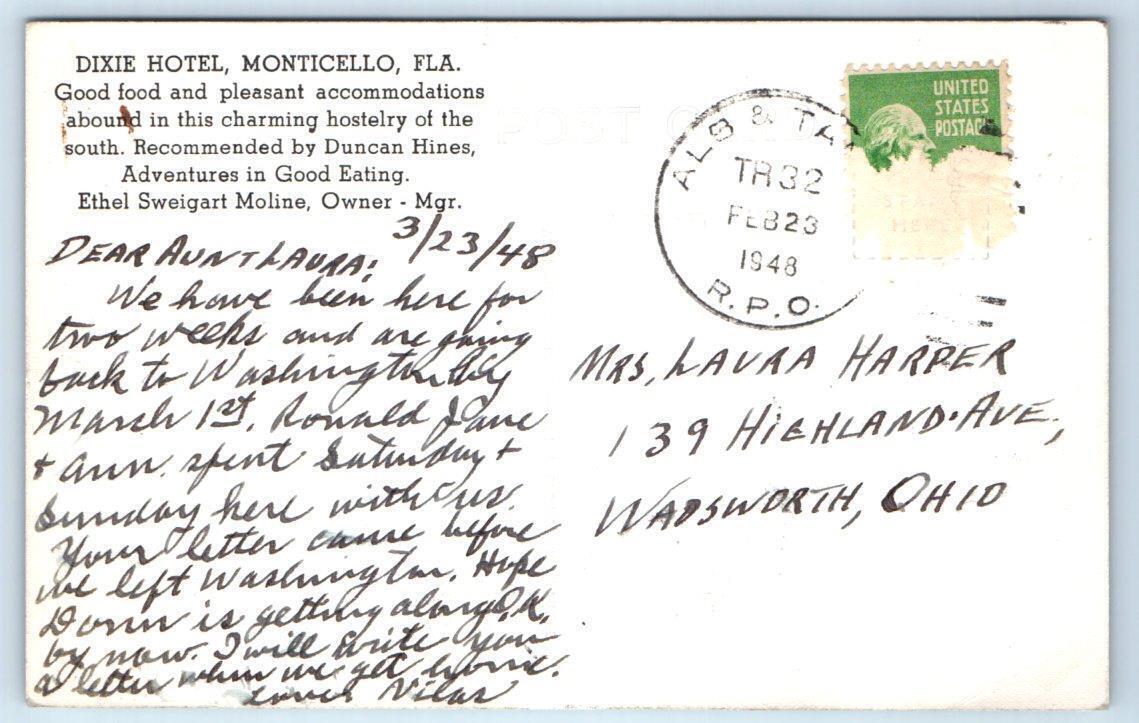 DIXIE HOTEL, MONTICELLO, FLA.
Good food and pleasant accommodations
abound in this charming hostelry of the
south. Recommended by Duncan Hines,
Adventures in Good Eating.
Ethel Sweigart Moline, Owner - Mgr.
3/23/48
DEAR AUNT LAURA;
We have been here for
two weeks and are going
back to Washington by
March 1st. Ronald Jane
& Ann. spent Saturday +
Sunday here with us.
Your letter came before
we left Washington. Hope
is getting along O.K.
by now. I will write you
a letter when we get home.
Love Vilas
POST
UNITED
STATES
POSTAG
STA
HERE
ALB & TA
TR 32
FEB 23
1948
R.P.O.
MRS, LAURA HARPER
139 HIGHLAND. AVE.,
WADSWORTH, OHIO